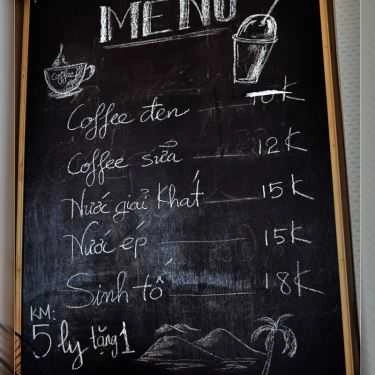 MENU
Coffee
Coffee đen 10K
Coffee sữa 12K
Nước giải Khát 15K
Nước ép 15K
Sinh tố 18K
KM:
5 ly tặng 1